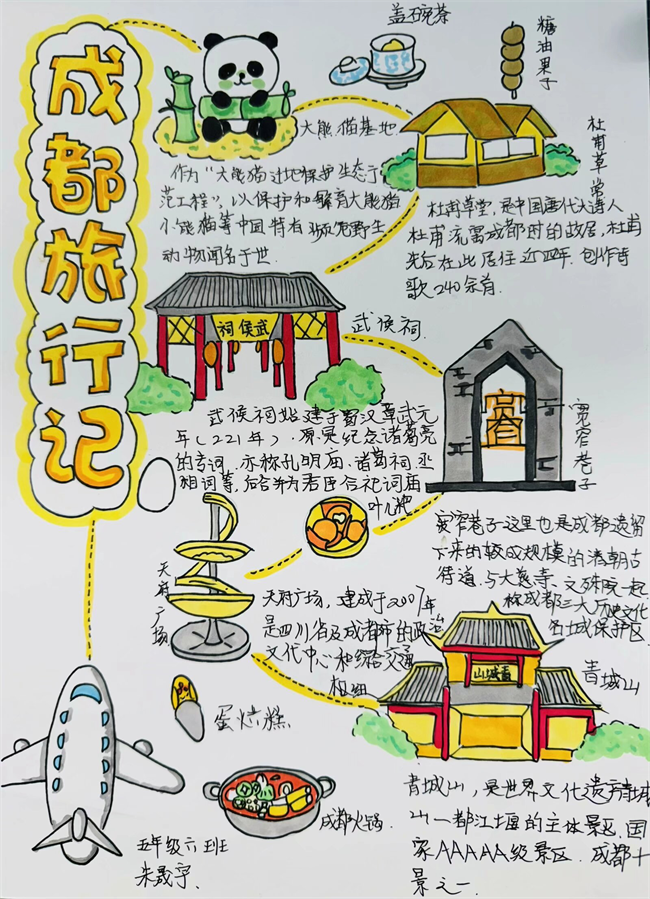 成都旅行记
盖碗茶
糖油果子
大熊猫基地
作为"大熊猫迁地保护生态示
范工程",以保护和繁育大熊猫
小熊猫等中国特有濒危野生
动物闻名于世.
杜甫草堂
杜甫草堂,是中国唐代大诗人
杜甫流寓成都时的故居,杜甫
先后在此居住近四年,创作诗
歌240余首.
武侯祠
武侯祠.
武侯祠始建于蜀汉章武元
年(221年).原是纪念诸葛亮
的专祠,亦称孔明庙.诸葛祠.丞
相词等,后合并为君臣合祀词庙
叶儿粑
宽窄
宽窄巷子
宽窄巷子这里也是成都遗留
下来的较成规模的清朝古
街道.与大慈寺、文殊院一起
称成都三大历史文化
名城保护区.
天府广场
天府广场,建成于2007年
是四川省及成都市的政治
文化中心和综合交通
枢纽
青城山
山城青
青城山,是世界文化遗产青城
山一都江堰的主体景区.国
家AAAAA级景区.成都十
景之一.
蛋烘糕
成都火锅
五年级六班
朱晟宇.